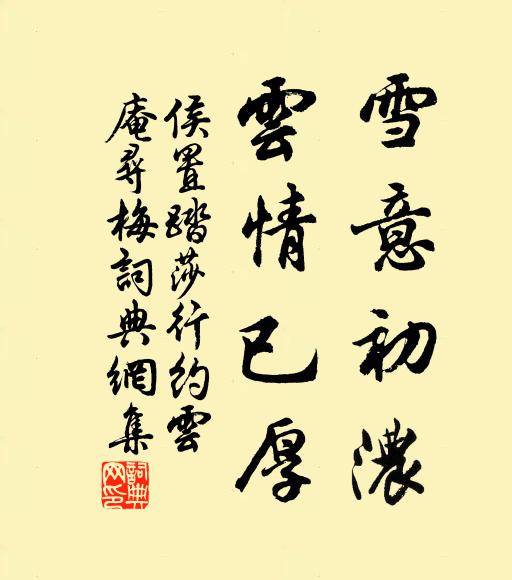 雪意初濃
雲情已厚
侯置踏莎行約雲
庵尋梅詞典網集
詞典网印